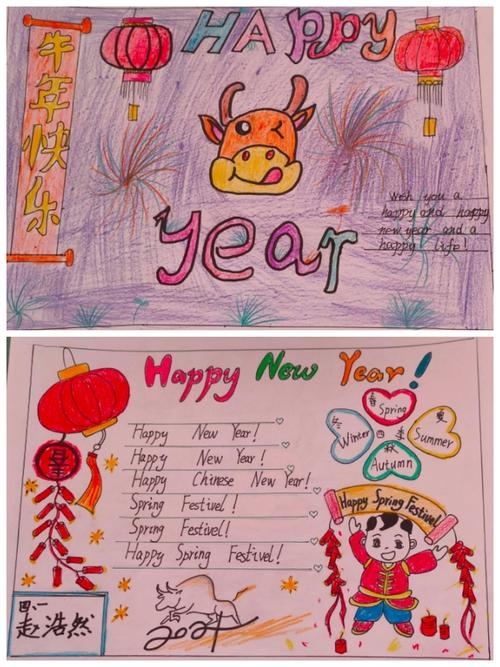 牛年快乐
HAppy
year
Wish you a
happy and happy
new year and a
happy life!
Happy New Year!
Happy New Year!
Happy New Year!
Happy Chinese New Year!
Spring Festivel!
Spring Festivel!
Happy Spring Festivel!
春
Spring
冬
Winter
四季
夏
Summer
秋
Autumn
Happy Spring Festivel
四、一
赵浩然
2021